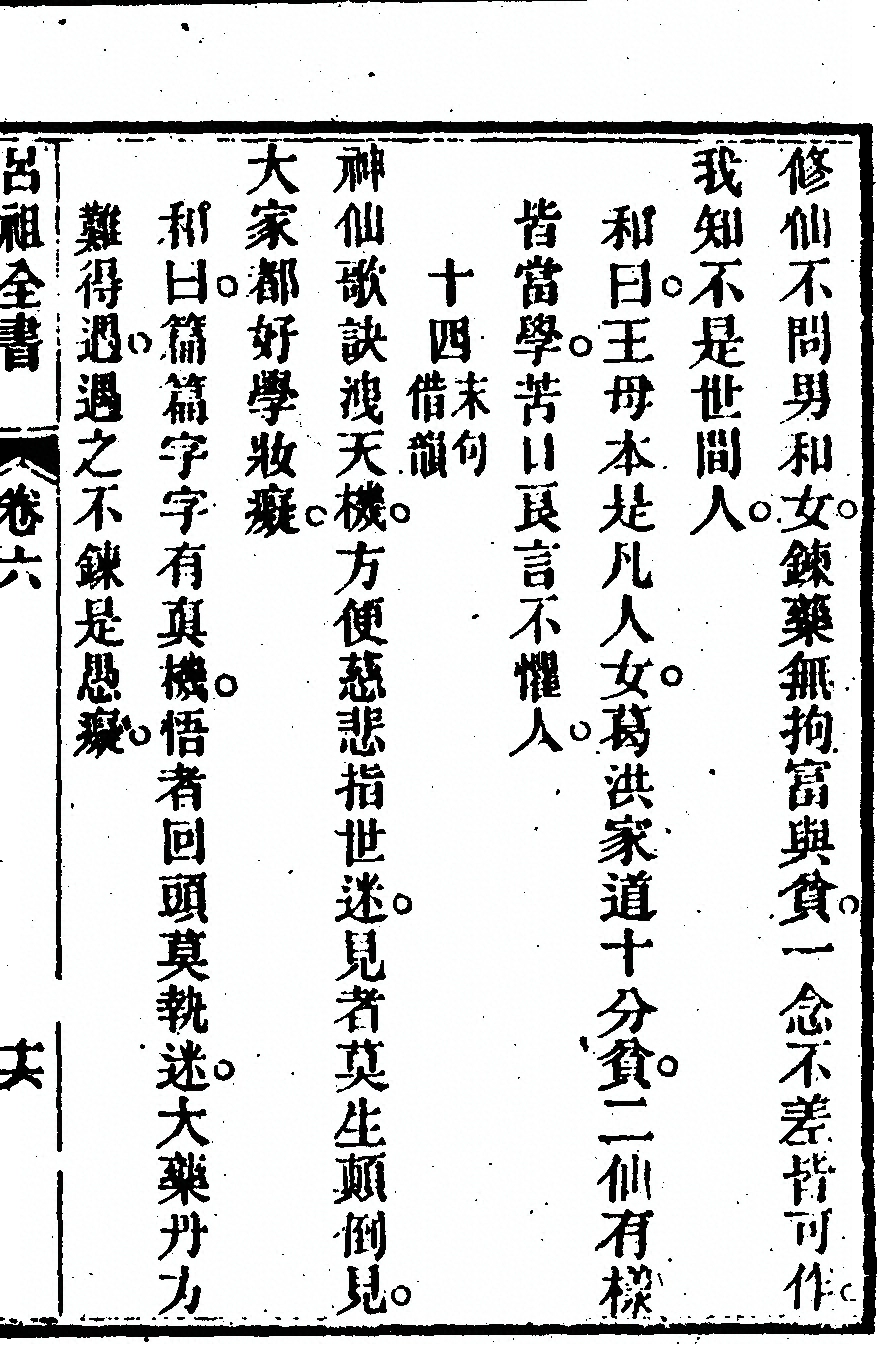 修仙不問男和女。鍊藥無拘富與貧。一念不差皆可作。
我知不是世間人。
和曰。王母本是凡人女。葛洪家道十分貧。二仙有樣
皆當學。苦口良言不懼人。
十四末句借韻
神仙歌訣洩天機。方便慈悲指世迷。見者莫生顛倒見。
大家都好學妝癡。
和曰。篇篇字字有真機。悟者回頭莫執迷。大藥丹方
難得遇。遇之不鍊是愚癡。
呂祖全書 卷六 十六